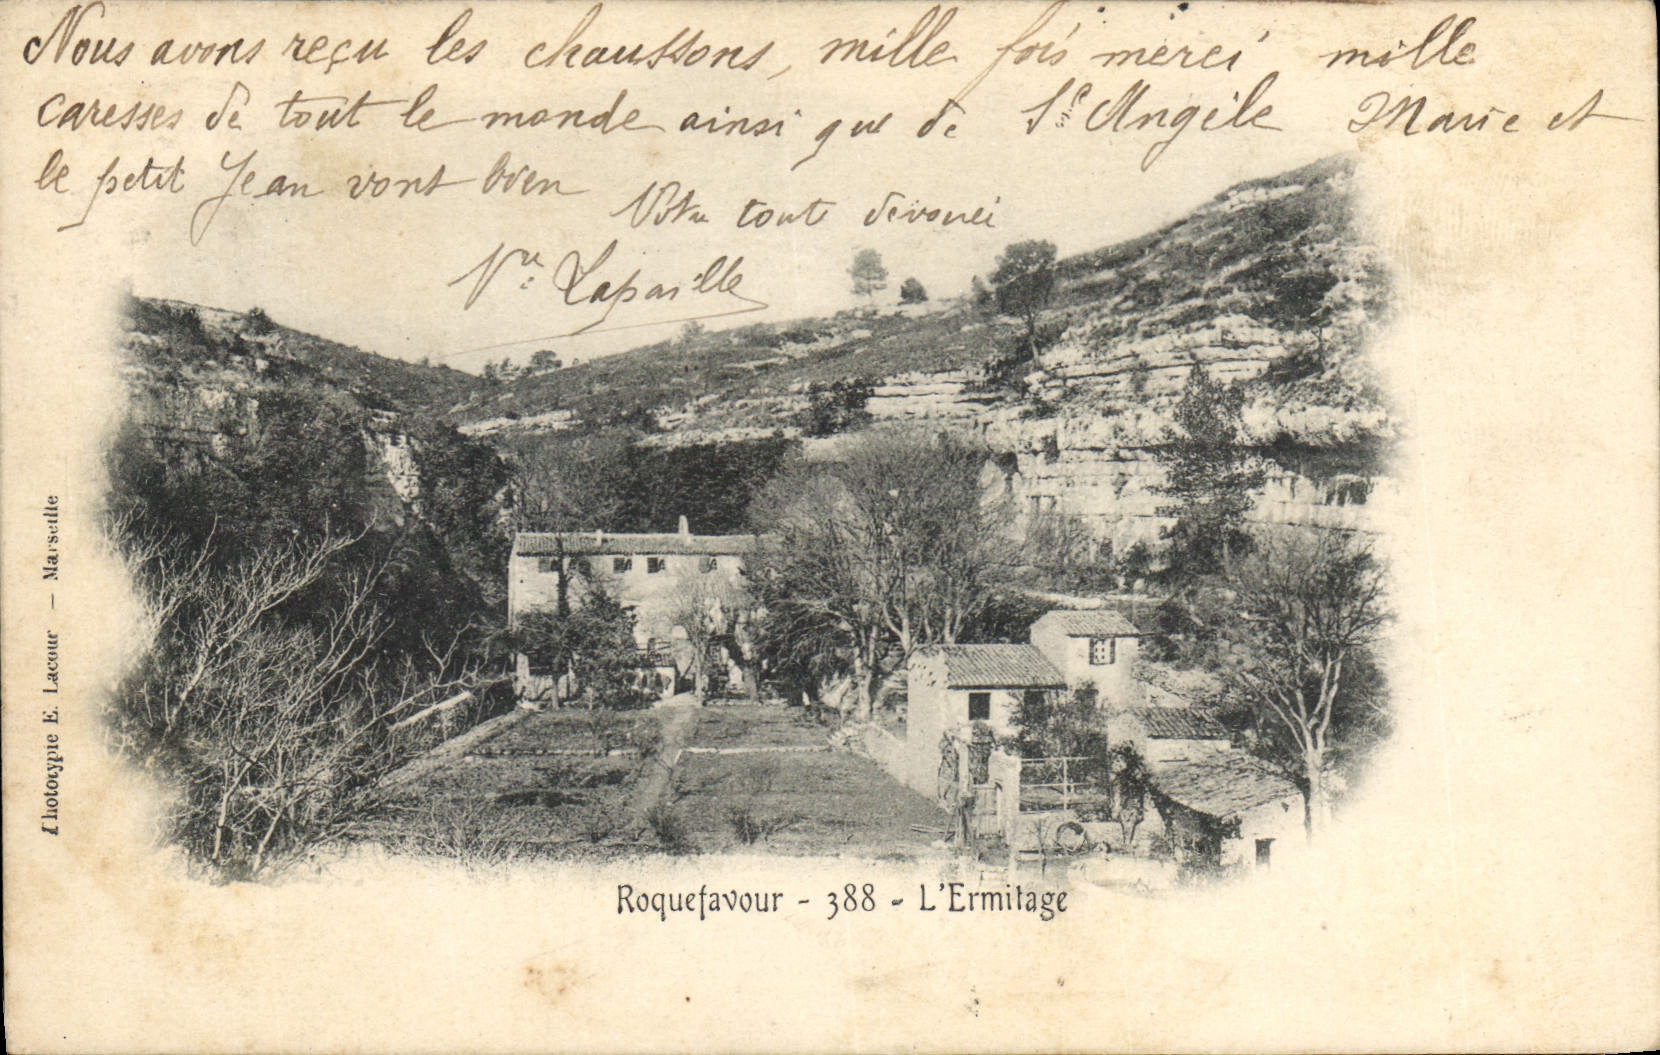 Nous avons reçu les chaussons, mille fois merci mille
caresses de tout le monde ainsi que de Sr Angèle Marie et
le petit Jean vont bien
Votre tout dévouéi
Vve Lapaille
Phototypie E. Lacour — Marseille
Roquefavour - 388 - L'Ermitage